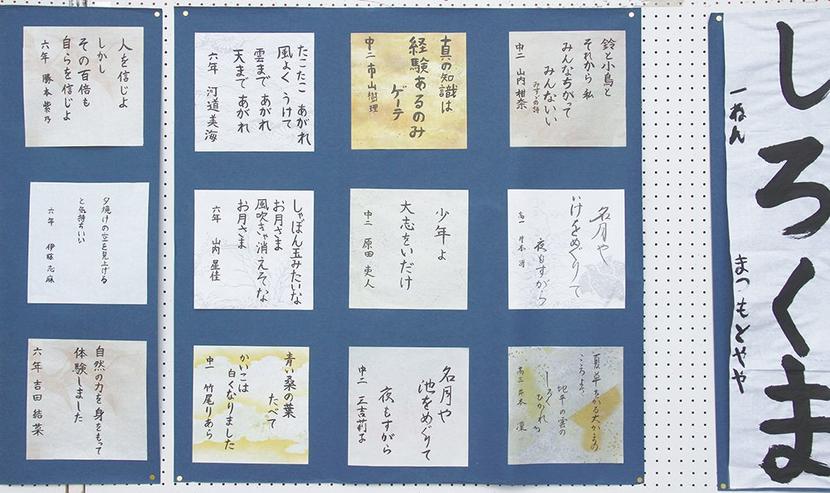 しろくま
一ねん
まつもとやや
鈴と小鳥と
それから私
みんなちがって
みんないい
みすゞの詩
中二 山内柑奈
真の知識は
経験あるのみ
ゲーテ
たこたこ あがれ
風よく うけて
雲まで あがれ
天まで あがれ
六年 河道美海
名月や
池をめぐりて
夜もすがら
少年よ
大志をいだけ
中三 原田
しゃぼん玉みたいな
お月さま
風吹きゃ消えそな
お月さま
六年 山内星佳
名月や
池をめぐりて
夜もすがら
青い桑の葉
たべて
かいこは
白くなりました
中一 竹尾りあら
人を信じよ
しかし
その百倍も
自らを信じよ
六年 勝本紫乃
夕焼けの空を見上げる
と気持ちいい
六年 伊塚
自然の力を身をもって
体験しました
六年 吉田結菜